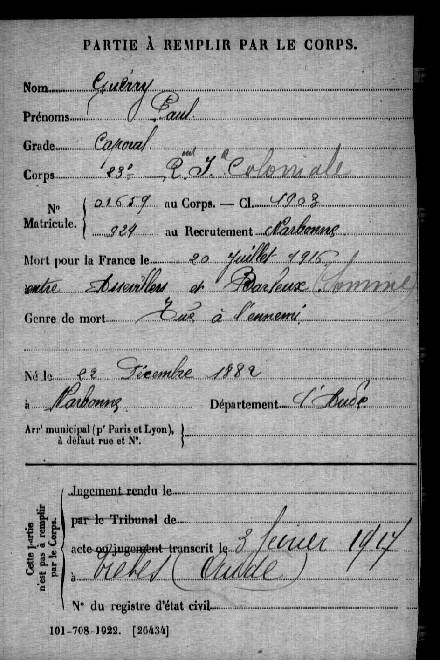 PARTIE À REMPLIR PAR LE CORPS.
Nom Guérry
Prénoms Paul
Grade Caporal
Corps 23e Rgt Ie Coloniale
N° Matricule. { 01659 au Corps. — Cl. 1903
329 au Recrutement Narbonne
Mort pour la France le 20 Juillet 1916
entre Assevillers et Barleux Somme
Genre de mort Tué à l'ennemi
Né le 22 Décembre 1882
à Narbonne Département l'Aude
Arr' municipal (pr Paris et Lyon), à défaut rue et N°. }
Cette partie n'est pas à remplir par le Corps.
Jugement rendu le
par le Tribunal de
acte ou jugement transcrit le 3 février 1917
à Trèbes (Aude)
N° du registre d'état civil
101-708-1922. [26434]